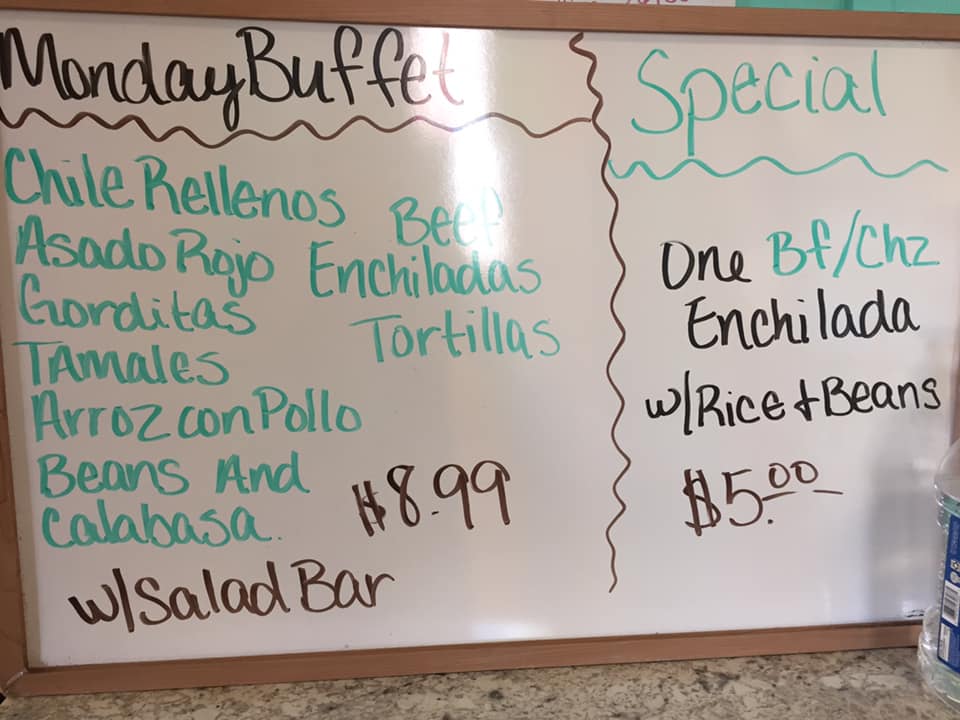 Monday Buffet
Chile Rellenos
Asado Rojo
Gorditas
TAmales
Arroz con Pollo
Beans And
Calabasa.
Beef
Enchiladas
Tortillas
$8.99
w/Salad Bar
Special
One Bf/Chz
Enchilada
w/Rice + Beans
$5.00